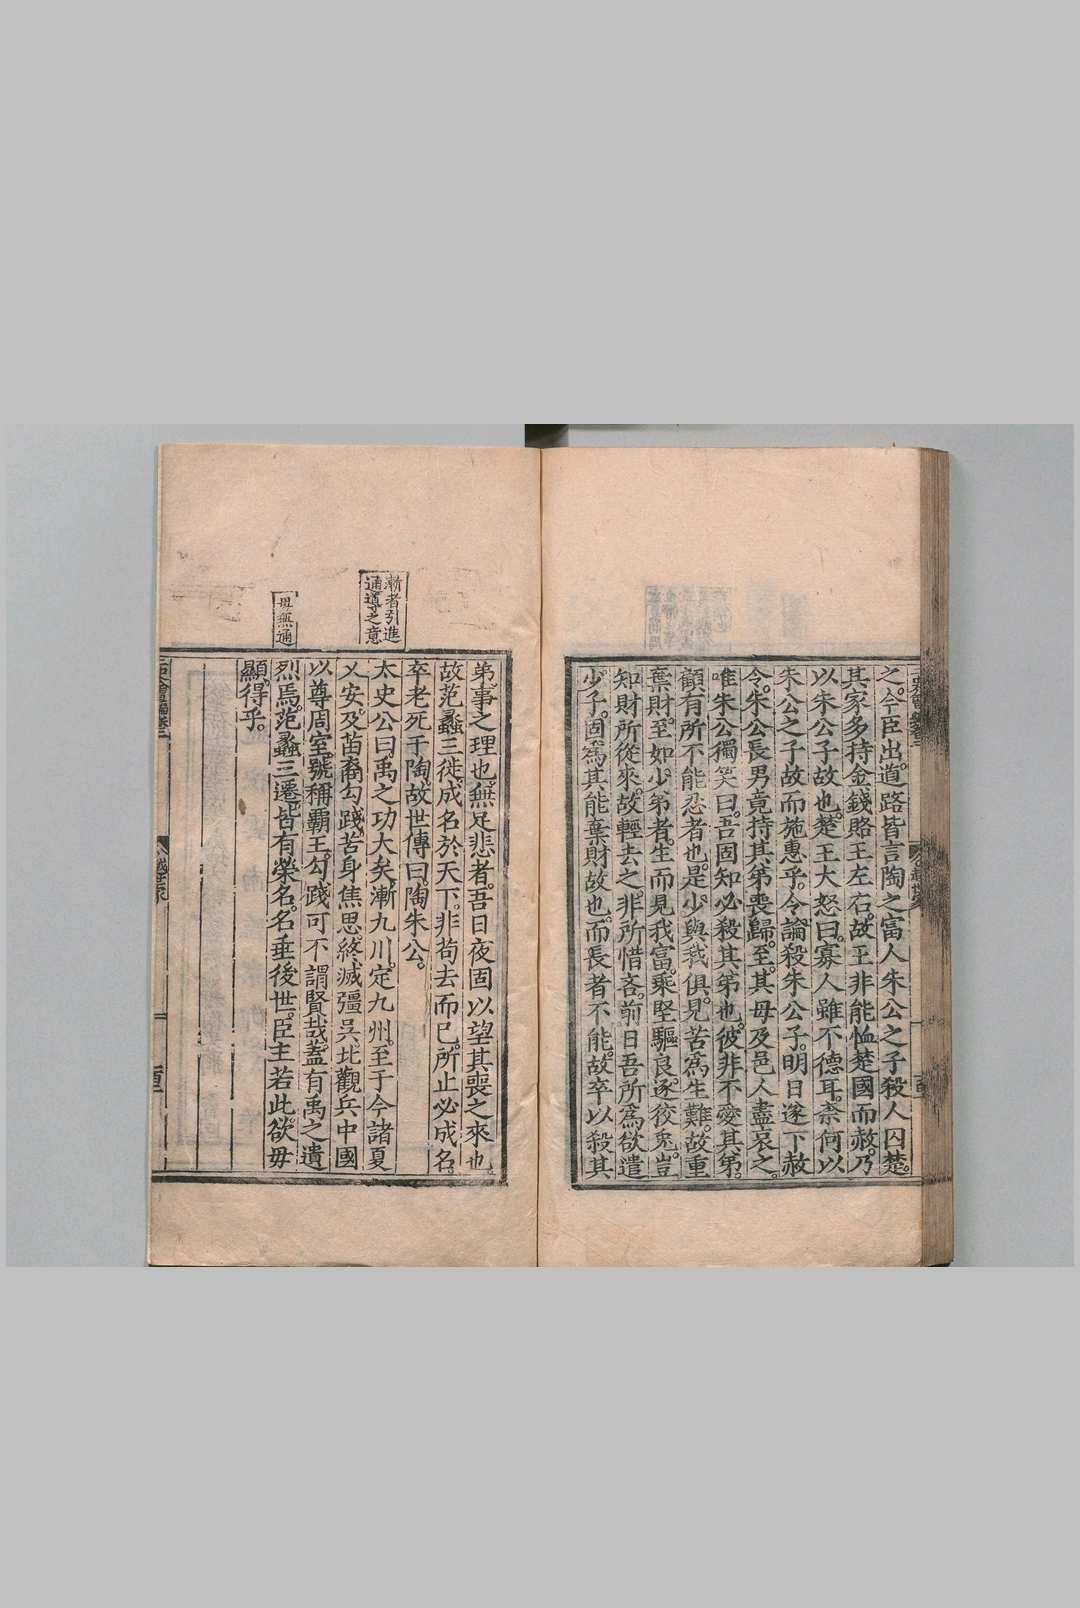 之。今臣出。道路皆言陶之富人朱公之子殺人囚楚。
其家多持金錢賂王左右。故王非能恤楚國而赦。乃
以朱公子故也。楚王大怒曰。寡人雖不德耳。柰何以
朱公之子故而施惠乎。令論殺朱公子。明日遂下赦
令。朱公長男竟持其弟喪歸。至。其母及邑人盡哀之。
唯朱公獨笑曰。吾固知必殺其弟也。彼非不愛其弟。
顧有所不能忍者也。是少與我俱。見苦爲生難。故重
棄財。至如少弟者。生而見我富。乘堅驅良。逐狡兎。豈
知財所從來。故輕去之。非所惜吝。前日吾所爲欲遣
少子。固爲其能棄財故也。而長者不能。故卒以殺其
漸者引進
通導之意
毋無通
弟。事之理也。無足悲者。吾日夜固以望其喪之來也。
故范蠡三徙。成名於天下。非苟去而已。所止必成名。
卒老死于陶。故世傳曰。陶朱公。
太史公曰。禹之功大矣。漸九川。定九州。至于今諸夏
乂安。及苗裔勾踐。苦身焦思。終滅彊吳。北觀兵中國
以尊周室。號稱霸王。勾踐可不謂賢哉。蓋有禹之遺
烈焉。范蠡三遷。皆有榮名。名垂後世。臣主若此。欲毋
顯。得乎。